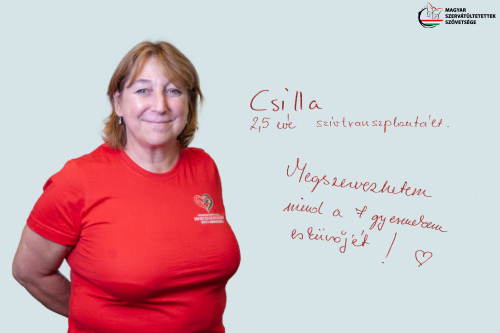 MAGYAR
SZERVÁTÜLTETETTEK
SZÖVETSÉGE
Csilla
2,5 éve szívtranszplantált.
Megszervezhetem
mind a 7 gyermekem
esküvőjét! ♡